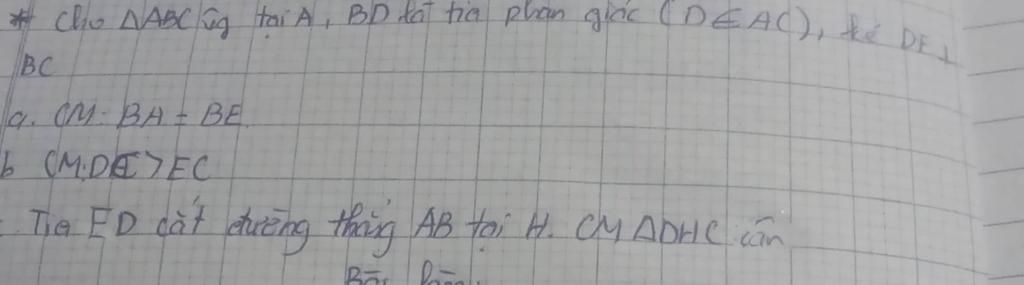 * Cho ΔABC ūg tại A, BD là tia phân giác (D ∈ AC), kẻ DE ⊥
BC
a. CM: BA = BE
b CM: DC > EC
Tia ED cắt đường thẳng AB tại H. CM ΔDHC cân
Bài làm